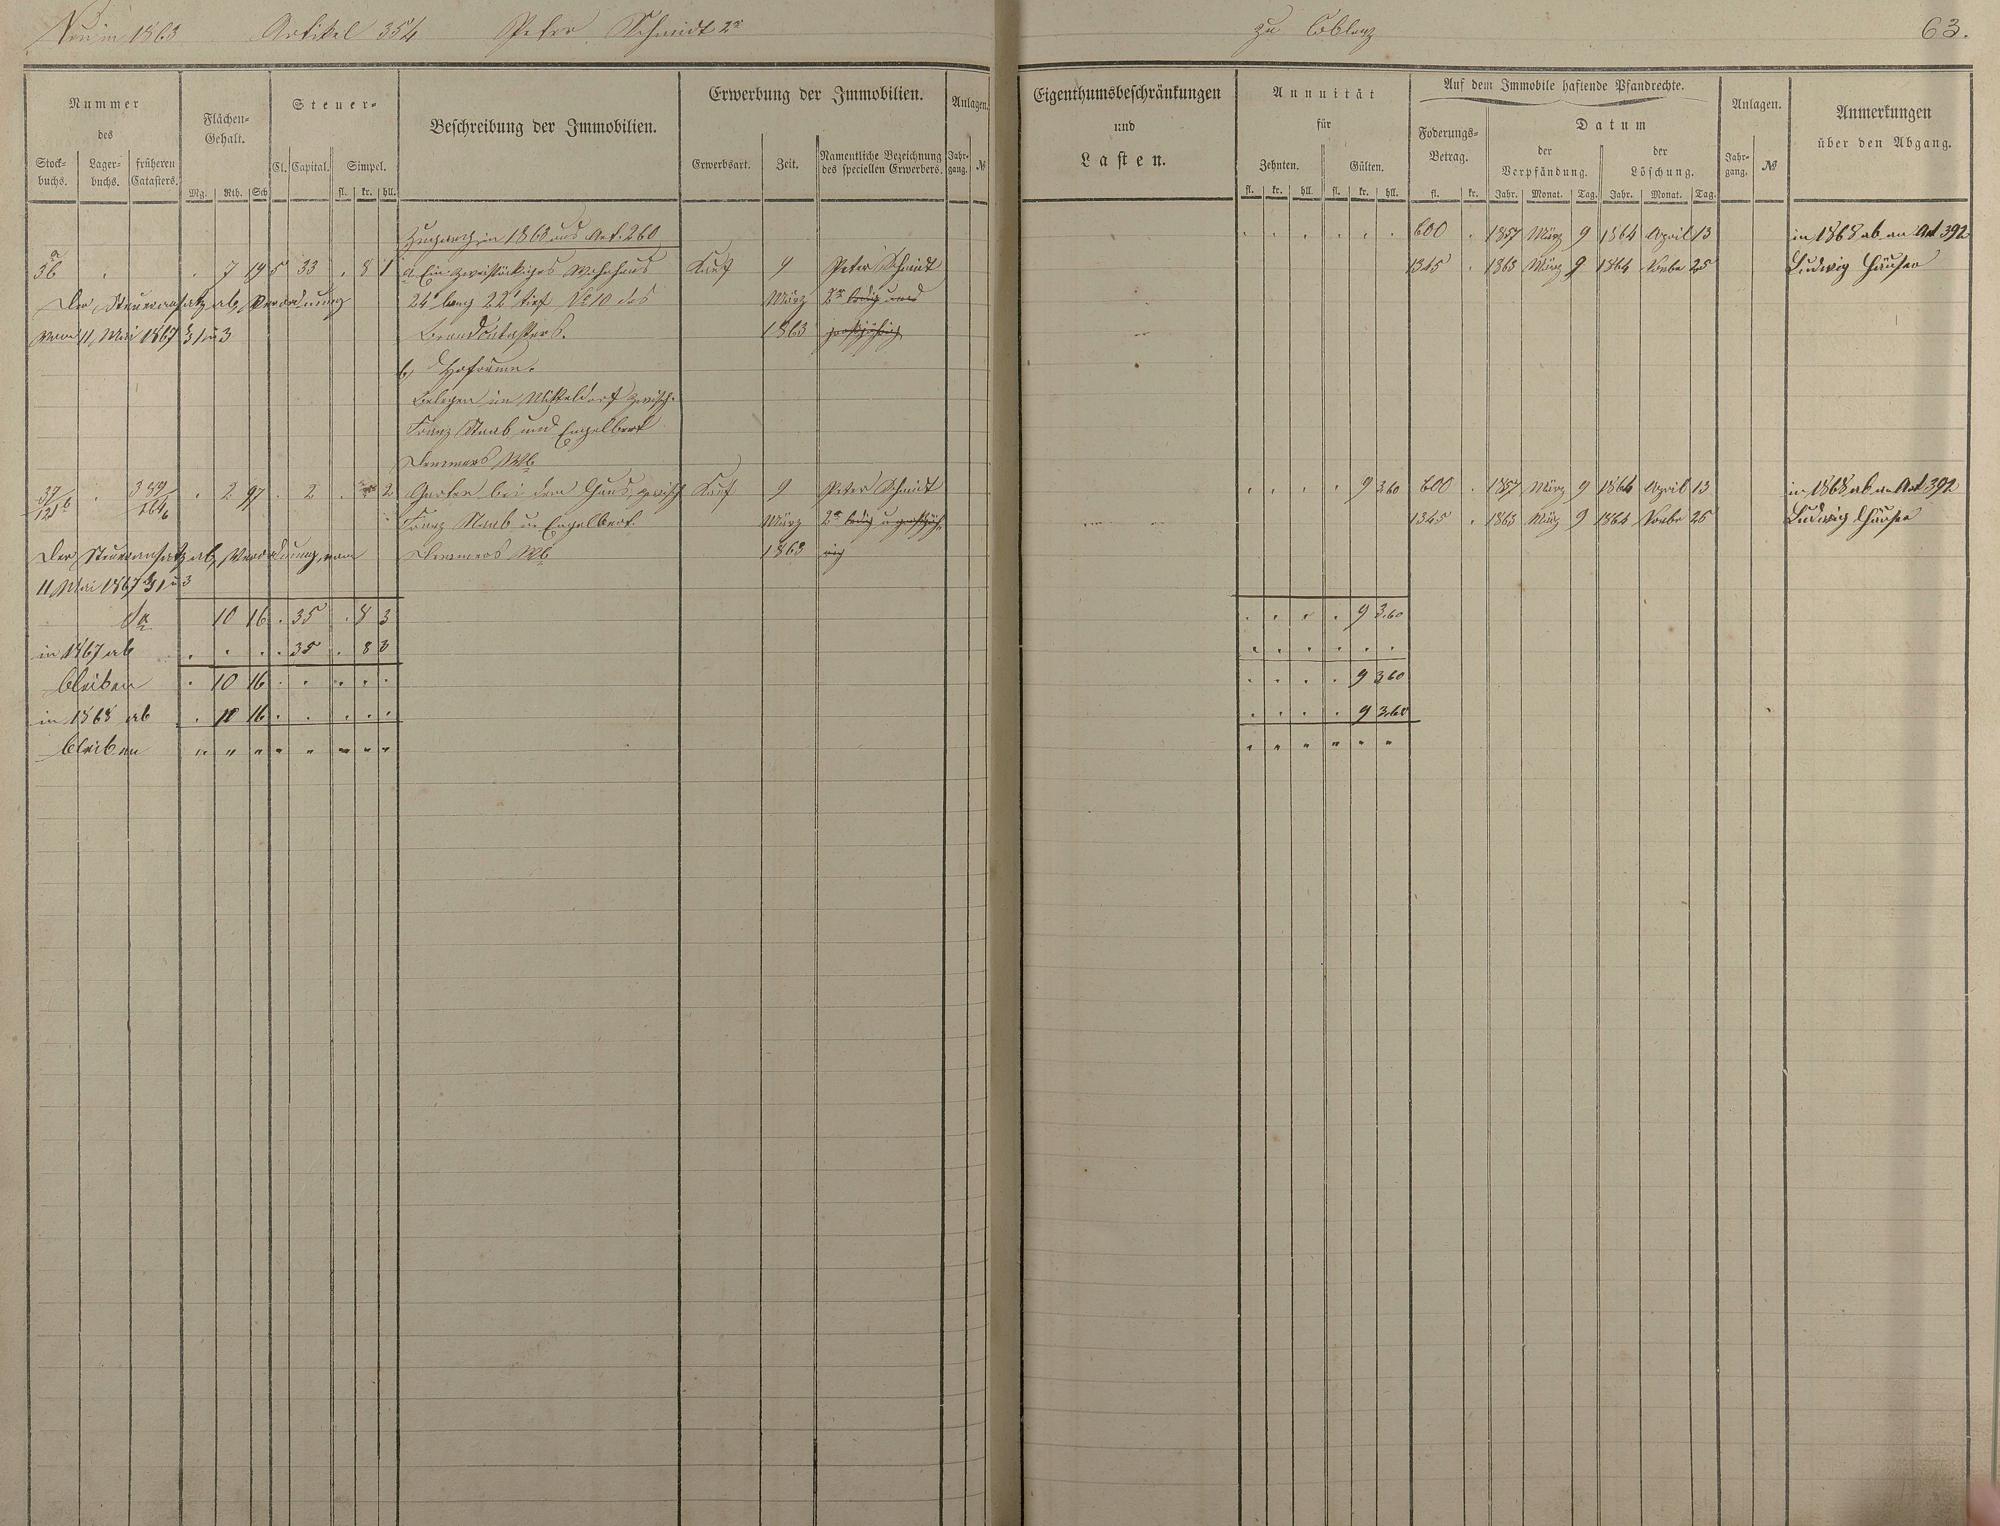 Neu in 1863 Artikel 354 Peter Schmidt 2r zu Coblenz 63.
Nummer des
Stockbuchs. Lagerbuchs. früheren Catasters.
Flächen-Gehalt.
Mg. Rth. Sch
Steuer-
Cl. Capital. Simpel.
fl. kr. hll.
Beschreibung der Immobilien.
Erwerbung der Immobilien.
Erwerbsart. Zeit. Namentliche Bezeichnung des speciellen Erwerbers.
Anlagen.
Jahrgang. №
Eigenthumsbeschränkungen
und
Lasten.
Annuität
für
Zehnten. Gülten.
fl. kr. hll. fl. kr. hll.
Auf dem Immobile haftende Pfandrechte.
Foderungs-Betrag.
fl. kr.
Datum
der Verpfändung. der Löschung.
Jahr. Monat. Tag. Jahr. Monat. Tag.
Anlagen.
Jahrgang. №
Anmerkungen
über den Abgang.
Zugang in 1863 aus Art. 260 600 1857 März 9 1864 April 13 in 1868 ab an Art 392
36 a 7 19 5 33 8 1 a, Ein zweistöckiges Wohnhaus Kauf 9 Peter Schmidt 1345 1863 März 9 1864 Novbe 25 Ludwig Häuser
Der Steueransatz ab, Verordnung 24' lang 22' tief № 10 des März 2r ledig und
vom 11 Mai 1867 § 1 u 3 Brandcatasters. 1863 großjährig
b, Hofraum.
Belegen im Mitteldorf zwisch.
Franz Staab und Engelbert
Demmers Wb
37/121 b 389/264 6 2 97 2 2 Garten bei dem Haus, zwisch Kauf 9 Peter Schmidt 9 3.60 600 1857 März 9 1864 April 13 in 1868 ab an Art 392
Franz Staab u. Engelbert März 2r ledig u großjäh 1345 1863 März 9 1864 Novbe 25 Ludwig Häuser
Der Steueransatz ab, Verordnung vom Demmers Wb 1863 rig
11 Mai 1867 § 1 u 3
Sa 10 16 35 8 3 9 3.60
in 1867 ab 35 8 3
bleiben 10 16 9 3.60
in 1868 ab 10 16 9 3.60
bleiben " " " " " " " "